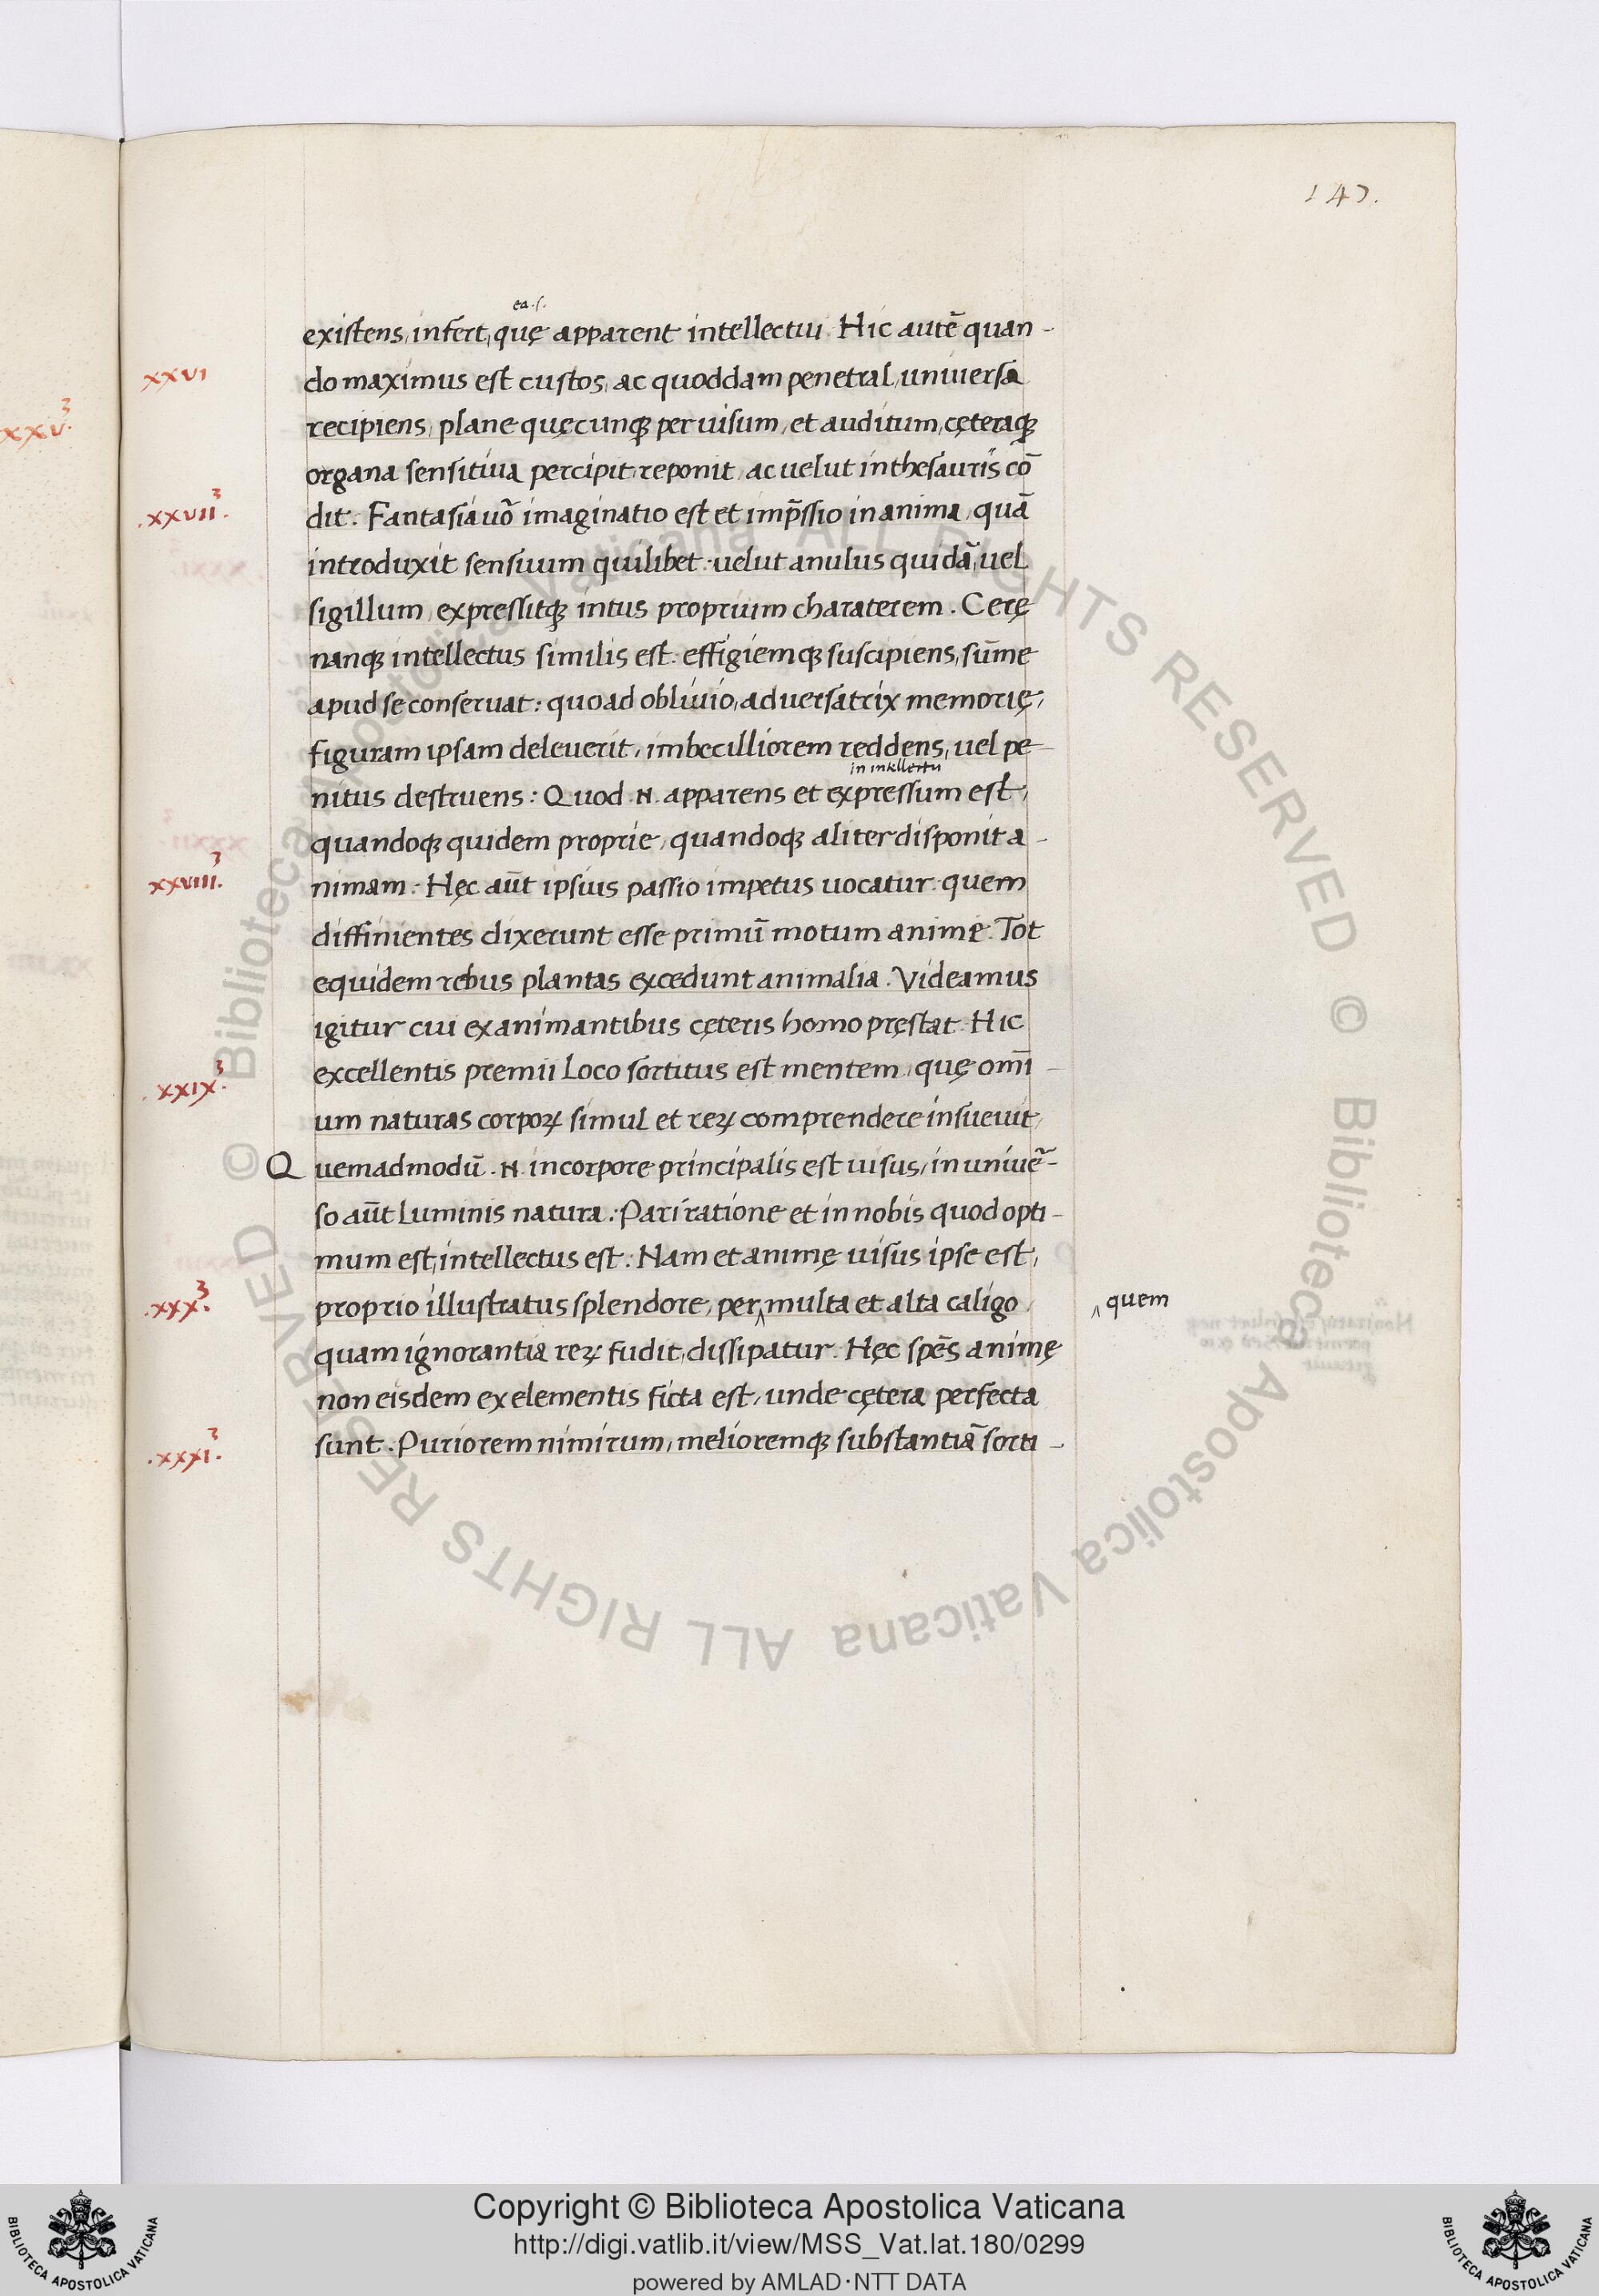 147.
ea .s.
existens, infert, quę apparent intellectui. Hic autē quan-
xxvi
do maximus est custos, ac quoddam penetral, universa
xxv.
recipiens, plane quęcunq; per visum, et auditum, cęteraq;
organa sensitiva percipit reponit, ac velut in thesauris cō
.xxvii.
dit. Fantasia vō imaginatio est et imp̄ssio in anima, quā
introduxit sensuum quilibet: velut anulus quidā, vel
sigillum, expressitq; intus proprium charaterem. Cerę
nanq; intellectus similis est. effigiemq; suscipiens, sūme
apud se conservat: quoad oblivio, adversatrix memorię,
figuram ipsam deleverit, imbecilliorem reddens, vel pe-
in intellectu
nitus destruens: Quod .N. apparens et expressum est,
quandoq; quidem proprie, quandoq; aliter disponit a-
xxviii.
nimam. Hęc aūt ipsius passio impetus vocatur. quem
diffinientes dixerunt esse primū motum animę. Tot
equidem rebus plantas excedunt animalia. Videamus
igitur cui ex animantibus cęteris homo pręstat. Hic
.xxix.
excellentis premii loco sortitus est mentem, quę omī-
um naturas corpoꝝ simul et reꝝ comprendere insuevit,
Quemadmodū .N. in corpore principalis est visus, in univē-
so aūt luminis natura: Pari ratione et in nobis quod opti-
mum est, intellectus est: Nam et animę visus ipse est,
.xxx.
proprio illustratus splendore, per ‸ multa et alta caligo,
‸ quem
quam ignorantia reꝝ fudit, dissipatur. Hęc spēs animę
non eisdem ex elementis ficta est, unde cętera perfecta
.xxxi.
sunt. Puriorem nimirum, melioremq; substantiā sorti-
Copyright © Biblioteca Apostolica Vaticana
http://digi.vatlib.it/view/MSS_Vat.lat.180/0299
powered by AMLAD·NTT DATA
BIBLIOTECA APOSTOLICA VATICANA
BIBLIOTECA APOSTOLICA VATICANA
© Biblioteca Apostolica Vaticana ALL RIGHTS RESERVED © Biblioteca Apostolica Vaticana ALL RIGHTS RESERVED